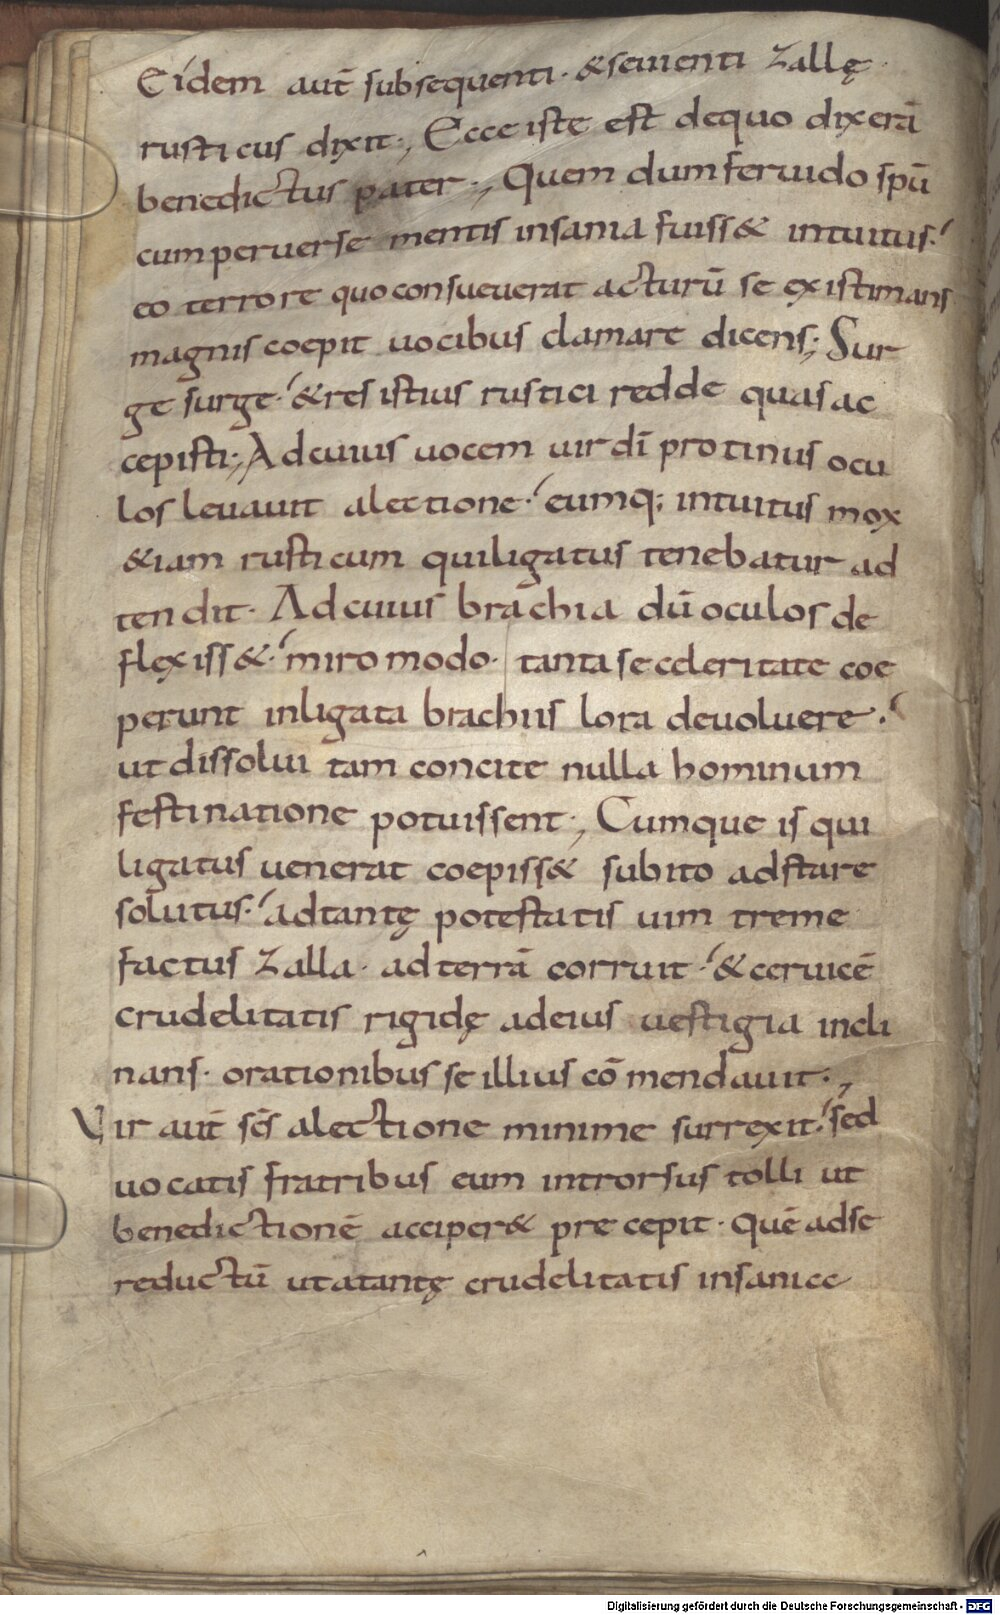 Eidem aut̄ subsequenti · & seuienti Zallę
rusticus dixit ·, Ecce iste est dequo dixerā
benedictus pater ·, Quem dum feruido spū
cum peruerse mentis insania fuiss& intuitus ·
eo terrore quo consueuerat acturū se existimans
magnis coepit uocibus clamare dicens ; Sur
ge surge · & res istius rustici redde quas ac
cepisti ·, Ad cuius uocem uir dī protinus ocu
los leuauit a lectione · eumq; intuitus mox
&iam rusticum qui ligatus tenebatur ad
tendit · Ad cuius brachia dū oculos de
flexiss& · miro modo · tanta se celeritate coe
perunt inligata brachiis lora deuoluere ·
ut dissolui tam concite nulla hominum
festinatione potuissent ·, Cumque is qui
ligatus uenerat coepiss& subito adstare
solutus · ad tantę potestatis uim treme
factus Zalla · ad terrā corruit · & ceruicē
crudelitatis rigidę ad eius uestigia incli
nans · orationibus se illius cō mendauit ·,
Vir aut̄ sc̄s a lectione minime surrexit · sed
uocatis fratribus eum introrsus tolli ut
benedictionē acciper& precepit · Quē ad se
reductū ut a tantę crudelitatis insanicc
Digitalisierung gefördert durch die Deutsche Forschungsgemeinschaft - DFG